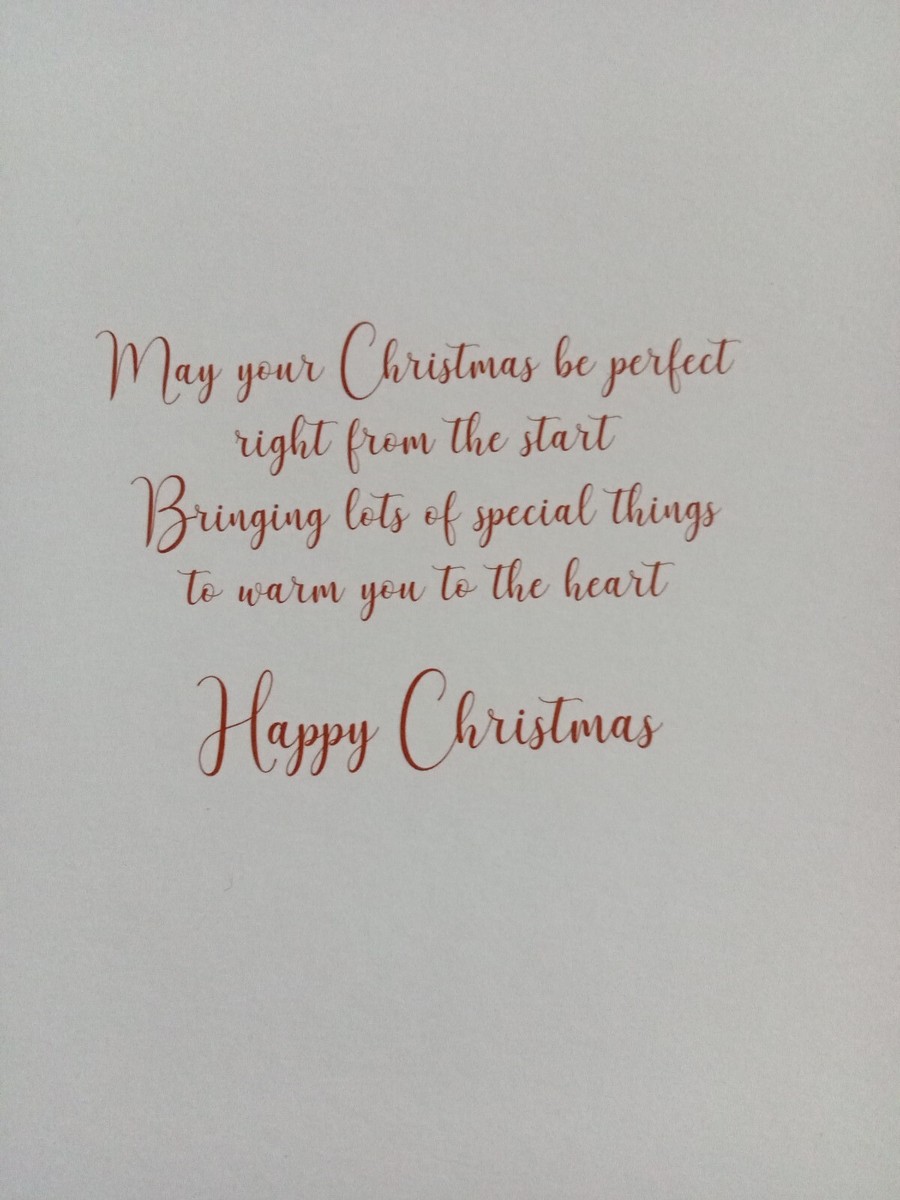 May your Christmas be perfect
right from the start
Bringing lots of special things
to warm you to the heart
Happy Christmas